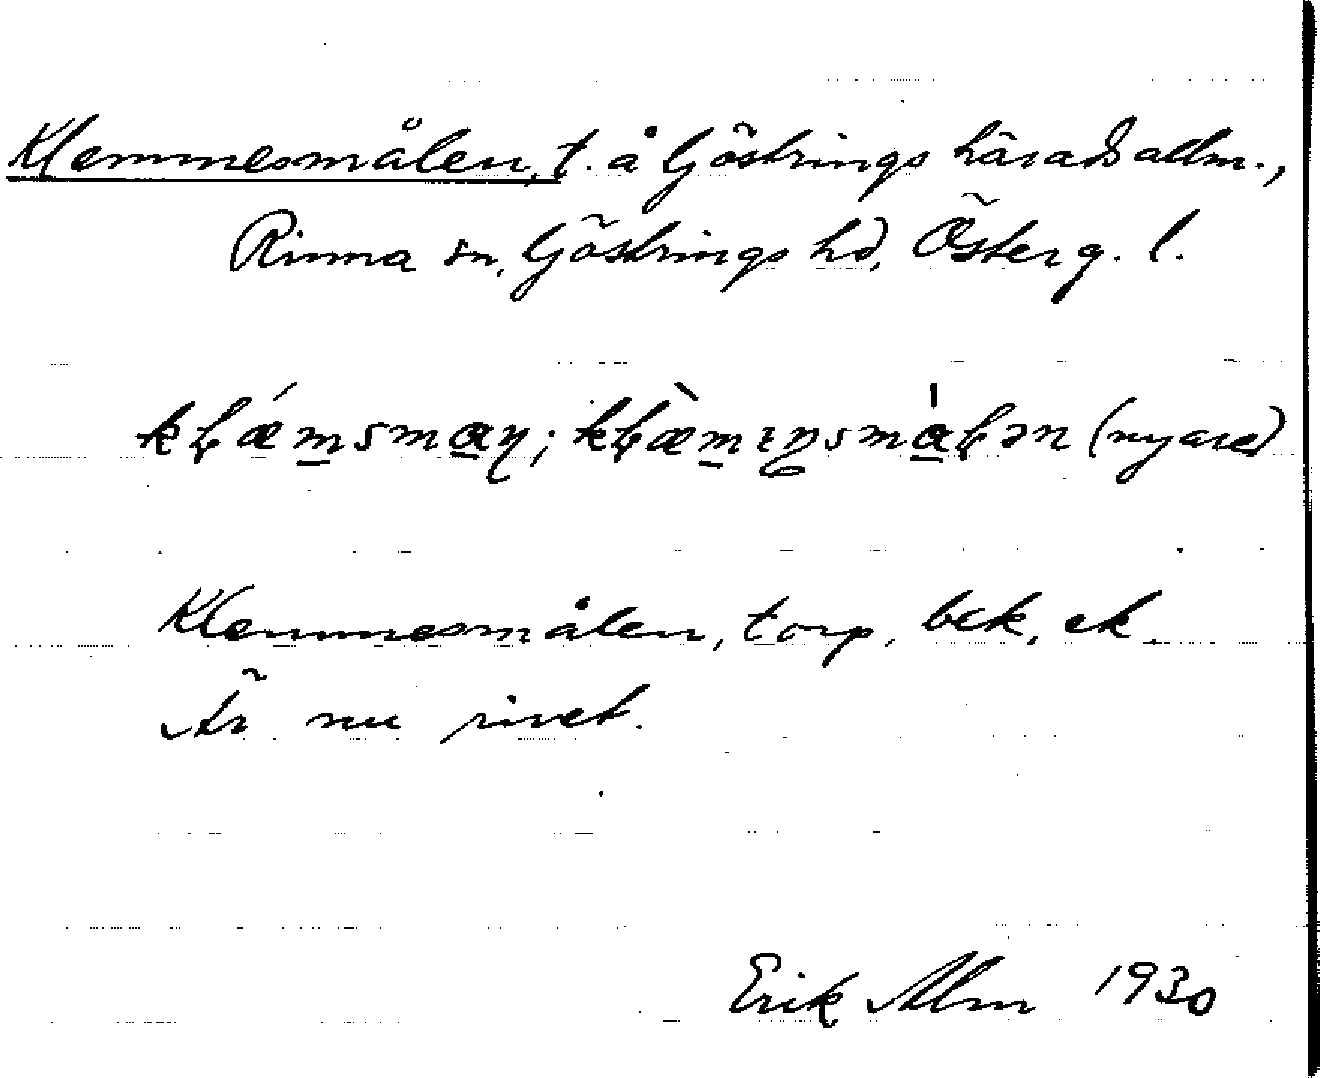 Klemmesmålen, t. å Göstrings häradsallm.,
Rinna sn, Göstrings hd, Österg. l.
(nyare)
Klemmesmålen, torp, bek, ek
Är nu rivet.
Erik Alm 1930